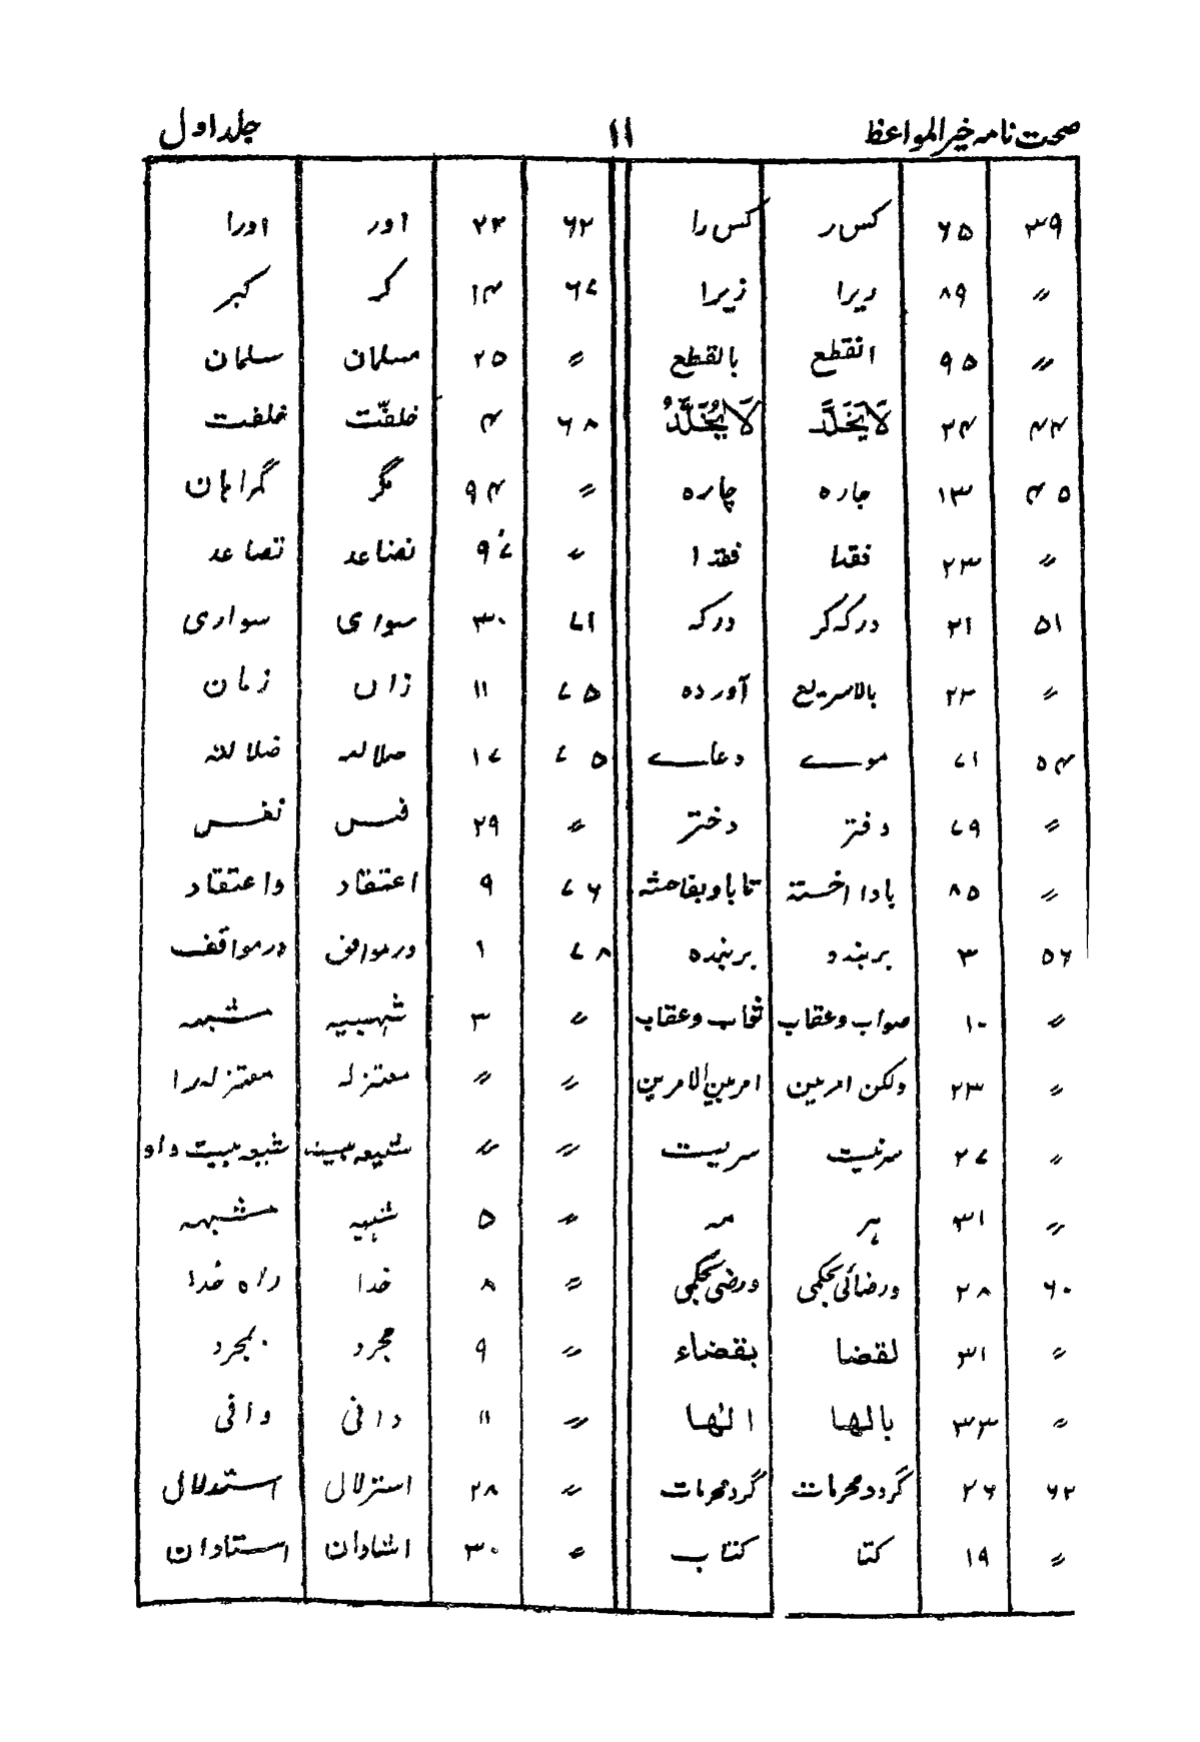 صحت نامہ خیر المواعظ ۱۱ جلد اول
۳۹ ۶۵ کس ر کس را ۶۲ ۲۳ اور اورا
〃 ۸۹ دیرا زیرا ۶۷ ۱۴ کر کبر
〃 ۹۵ انقطع بالقطع 〃 ۲۵ مسلمان سلمان
۴۴ ۲۴ لَا یَخَلَّدَ لَا یُخَلَّدُ ۶۸ ۴ خلفّت خلفت
۴۵ ۱۳ جارہ چارہ 〃 ۹۴ مگر گمراہان
〃 ۲۳ فقدا 〃 ۹۷ تضاعد تصاعد
۵۱ ۲۱ درکہ کر درکہ ۷۱ ۳۰ سواری
〃 ۲۳ بالاسریع آوردہ ۷۵ ۱۱ زاں زمان
۵۴ ۷۱ موے دعاے ۷۵ ۱۷ ضلاللہ
〃 ۶۹ دفتر دختر 〃 ۲۹ فس نفس
〃 ۸۵ تا با و بفاحشہ ۷۶ ۹ اعتقاد واعتقاد
۵۶ ۳ بربندو بربندہ ۷۸ ۱ درمواقف
〃 ۱۰ صواب وعقاب ثواب وعقاب 〃 ۳ شہبیہ مشبہہ
〃 ۲۳ ولکن امر بین امر بین الامرین 〃 〃 معتزلہ معتزلہ را
〃 ۲۷ سرنیت سریت 〃 〃
〃 ۳۱ ہر مہ 〃 ۵ شبہہ مشبہہ
۶۰ ۲۸ ورضائی بحکمی ورضی بحکمی 〃 ۸ خدا راہ خدا
〃 ۳۱ لقضا بقضاء 〃 ۹ مجرد بمجرد
〃 ۳۳ بالہا الہا 〃 ۱۱ دافی وافی
۶۲ ۲۶ گردد محرمات گرد محرمات 〃 ۲۸ استزلال استدلال
〃 ۱۹ کتا کتاب 〃 ۳۰ اشادان استادان